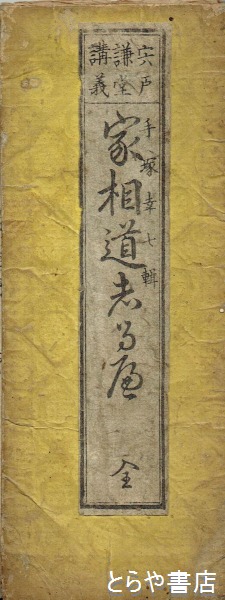 宍戸
謙堂
講義
手塚幸七輯
家相道志るべ
全
とらや書店